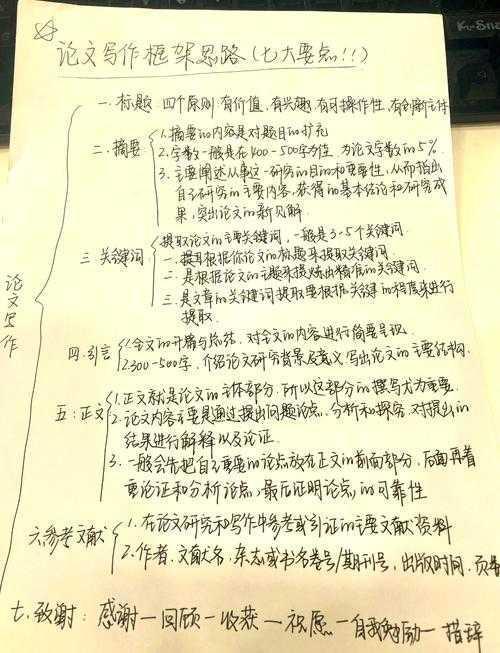 论文写作框架思路(七大要点!!)
论文写作
一. 标题 四个原则:有价值,有兴趣,有可操作性,有创新立体
二. 摘要
1.摘要的内容是对题目的扩充
2.字数一般是在400-500字为佳,为论文字数的5%.
3.主要阐述从事这一研究的目的和重要性,从而指出
自己研究的主要内容,获得的基本结论和研究成
果,突出论文的新见解.
三 关键词
提取论文的主要关键词,一般是3-5个关键词.
一.提取根据你论文的标题来提取关键词.
二.是根据论文的主题来提炼出精准的关键词.
三.是文章的关键词提取要根据关键的程度来进行
提取.
四.引言
1.全文的开篇与总结.对全文的内容进行简要呈现.
2.300-500字,介绍论文研究背景及意义,写出论文的主要结构.
五:正文
1.正文就是论文的主体部分,所以这部分的撰写尤为重要.
2.论文内容主要是通过提出问题论点,分析和探究,对提出的
结果进行解释以及论证.
3.一般会先把自己重要的论点放在正文的前面部分,后面再着
重论证和分析论点,最后证明论点的可靠性
六.参考文献
1.在论文研究和写作中参考或引证的主要文献资料
2.作者.文献名.杂志或书名卷号/期刊号,出版时间.页
七.致谢: 感谢一回顾一收获一祝愿一自我勉励一措辞